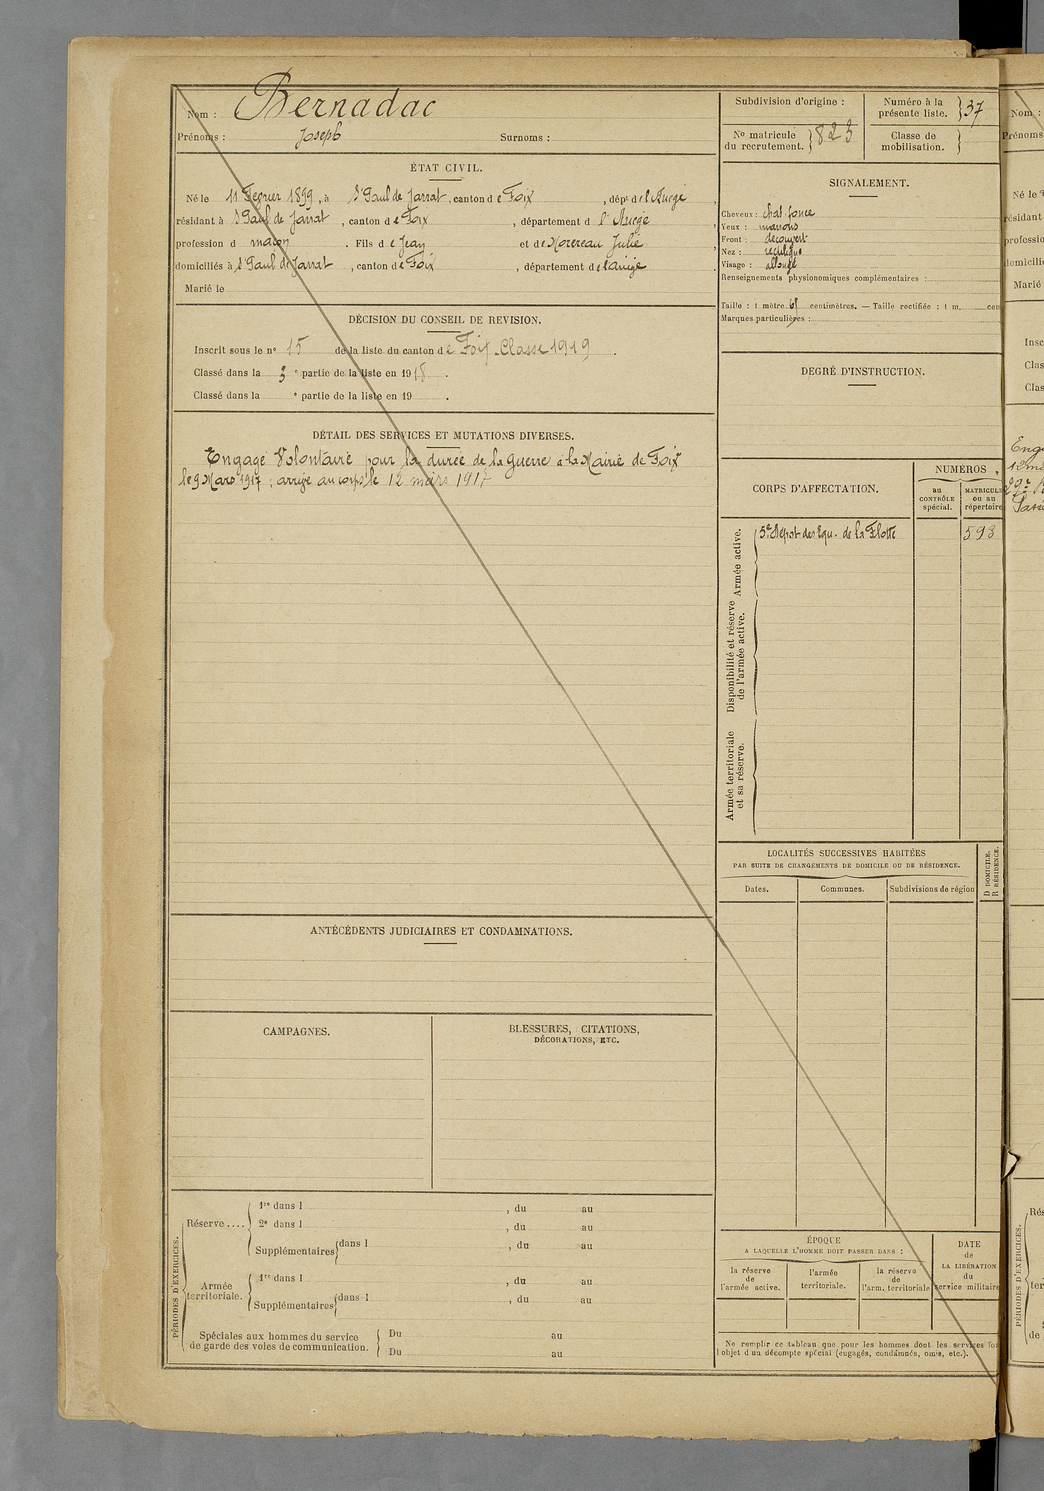 Nom : Bernadac
Prénoms : Joseph Surnoms :
ÉTAT CIVIL.
Né le 11 Fevrier 1899, à St Paul de Jarrat, canton de Foix, dépt de l'Ariège
résidant à St Paul de Jarrat, canton de Foix, département d l'Ariège
profession d maçon. Fils de Jean et de Julie
domiciliés à St Paul de Jarrat, canton de Foix, département de l'ariège
Marié le
DÉCISION DU CONSEIL DE REVISION.
Inscrit sous le n° 15 de la liste du canton de Foix Classe 1919.
Classé dans la 3e partie de la liste en 1918.
Classé dans la e partie de la liste en 19 .
DÉTAIL DES SERVICES ET MUTATIONS DIVERSES.
Engagé Volontaire pour la durée de la Guerre à la Mairie de Foix
le 9 Mars 1917 ; arrivé au corps le 12 mars 1917
ANTÉCÉDENTS JUDICIAIRES ET CONDAMNATIONS.
CAMPAGNES.
BLESSURES, CITATIONS,
DÉCORATIONS, ETC.
PÉRIODES D'EXERCICES.
Réserve ....
1re dans l , du au
2e dans l , du au
Supplémentaires dans l , du au
Armée
territoriale.
1re dans l , du au
Supplémentaires dans l , du au
Spéciales aux hommes du service
de garde des voies de communication.
Du au
Du au
Subdivision d'origine :
Numéro à la
présente liste. 37
N° matricule
du recrutement. 823
Classe de
mobilisation.
SIGNALEMENT.
Cheveux : chat. fonce
Yeux : marrons
Front : découvert
Nez : rectiligne
Visage : allongé
Renseignements physionomiques complémentaires :
Taille : 1 mètre 61 centimètres. — Taille rectifiée : 1 m. cen
Marques particulières :
DEGRÉ D'INSTRUCTION.
CORPS D'AFFECTATION.
NUMÉROS
au
CONTRÔLE
spécial.
MATRICULE
ou au
répertoire
Armée active.
5e Dépot des Equ. de la Flotte 593
Disponibilité et réserve
de l'armée active.
Armée territoriale
et sa réserve.
LOCALITÉS SUCCESSIVES HABITÉES
PAR SUITE DE CHANGEMENTS DE DOMICILE OU DE RÉSIDENCE.
Dates. Communes. Subdivisions de région
D DOMICILE.
R RÉSIDENCE.
ÉPOQUE
A LAQUELLE L'HOMME DOIT PASSER DANS :
la réserve
de
l'armée active.
l'armée
territoriale.
la réserve
de
l'arm. territoriale
DATE
de
LA LIBÉRATION
du
service militaire
Ne remplir ce tableau que pour les hommes dont les services fo
l'objet d'un décompte spécial (engagés, condamnés, omis, etc.).
Nom :
Prénoms
Né le
résidant
professio
domicili
Marié
Insc
Clas
Clas
Enga
PÉRIODES D'EXERCICES.
Rés
ter
de